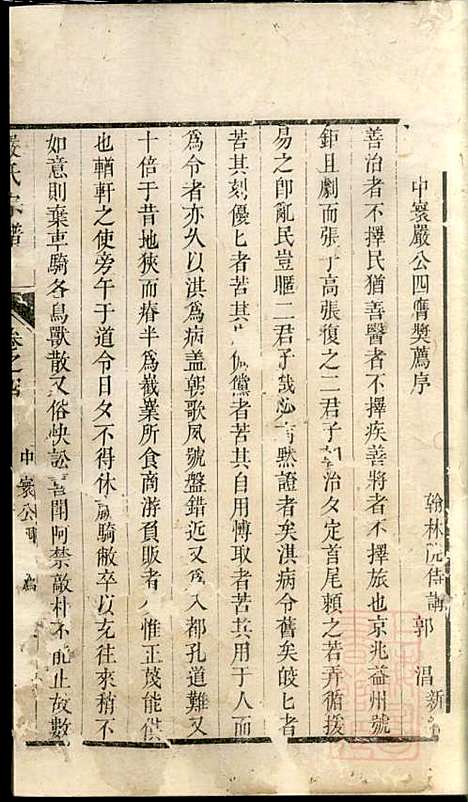 中寰嚴公四膺獎薦序
翰林院侍講郭淐新
善治者不擇民猶善醫者不擇疾善將者不擇旅也京兆益州號
鉅且劇而張子高張復之二君子治久定首尾賴之若弄循援
易之即亂民豈暱二君子哉必有默證者矣淇病令舊矣皎皎者
苦其刻優优者苦其倜儻者苦其自用博取者苦其用于人而
為令者亦久以淇為病盖朝歌夙號盤錯近又為入都孔道難又
十倍于昔地狹而瘠半為巀嶪所食商游負販者惟正莈能供
也輶軒之使旁午于道令日夕不得休羸騎敝卒以充往來稍不
如意則棄車騎各鳥獸散又俗怏訟喜鬪呵禁敲朴不能止故數
嚴氏宗譜
卷之
中寰公